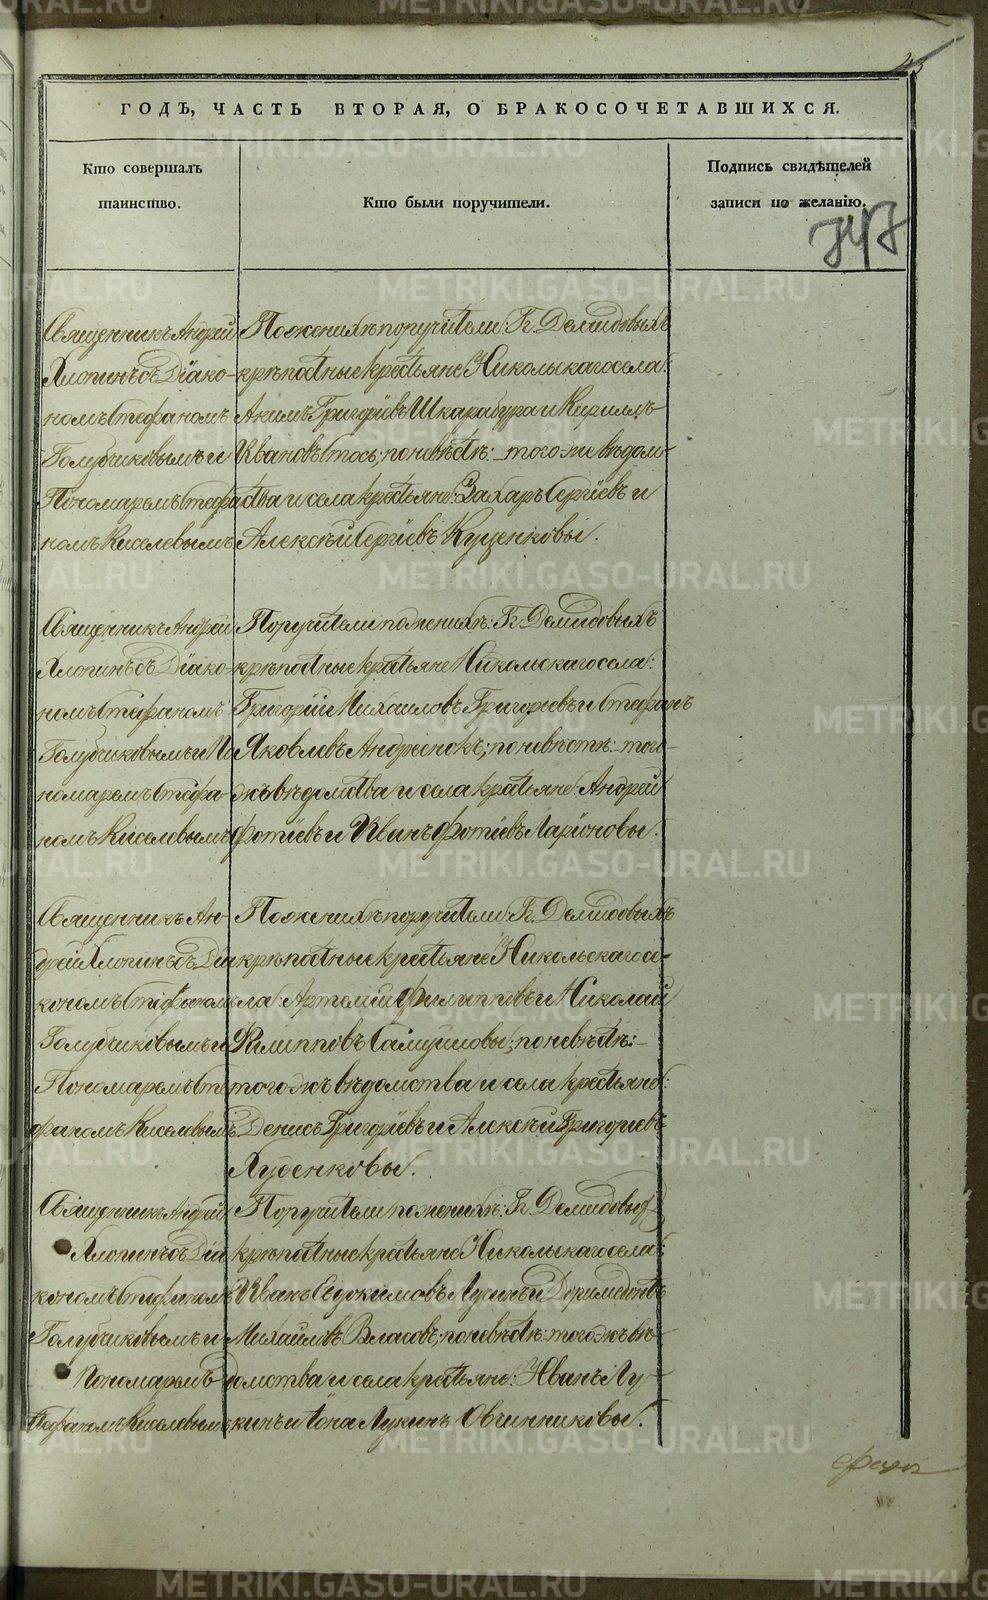 25
ГОДЪ, ЧАСТЬ ВТОРАЯ, О БРАКОСОЧЕТАВШИХСЯ.
Кто совершалъ
таинство.
Кто были поручители.
Подпись свидѣтелей
записи по желанію.
747
Священникъ Андрей
Хлопинъ съ Діако-
номъ Стефаномъ
Голубчиковымъ и
Пономаремъ Стефа
номъ Киселевымъ
По женихѣ поручители: Гг. Демидовыхъ
крѣпостные крестьяне Никольскаго села:
Акимъ Григорьевъ Шкарабура и Кириллъ
Ивановъ Стось; по невѣстѣ: того же вѣдом-
ства и села крестьяне: Захаръ Сергіевъ и
Алексѣй Сергіевъ Куценковы.
Священникъ Андрей
Хлопинъ съ Діако-
номъ Стефаномъ
Голубчиковымъ и По
номаремъ Стефа-
номъ Киселевымъ
Поручители по женихѣ: Гг. Демидовыхъ
крѣпостные крестьяне Никольскаго села:
Григорій Михаиловъ Григорьевъ и Стефанъ
Яковлевъ Андреенокъ; по невѣстѣ: того-
жъ вѣдомства и села крестьяне: Андрей
Фотіевъ и Иванъ Фотіевъ Ларіоновы.
Священникъ Ан-
дрей Хлопинъ съ Діа
кономъ Стефаномъ
Голубчиковымъ и
Пономаремъ Сте
фаномъ Киселевымъ
По женихѣ поручители: Гг. Демидовыхъ
крѣпостные крестьяне Никольскаго се-
ла: Артемій Филипповъ и Николай
Филипповъ; по невѣстѣ:
того жъ вѣдомства и села крестьяне:
Денисъ Григоріевъ и Алексѣй Григорьевъ
Худенковы.
Священникъ Андрей
Хлопинъ съ Діа
кономъ Стефаномъ
Голубчиковымъ и
Пономаремъ
Стефаномъ Киселевымъ
Поручители по женихѣ: Гг. Демидовыхъ
крѣпостные крестьяне Никольскаго села:
Иванъ Евдокимовъ и Доримедонтъ
Михайловъ Власовъ; по невѣстѣ: того жъ вѣ-
домства и села крестьяне: Иванъ Лу-
кинъ и Іона Лукинъ Овчинниковы.
METRIKI.GASO-URAL.RU